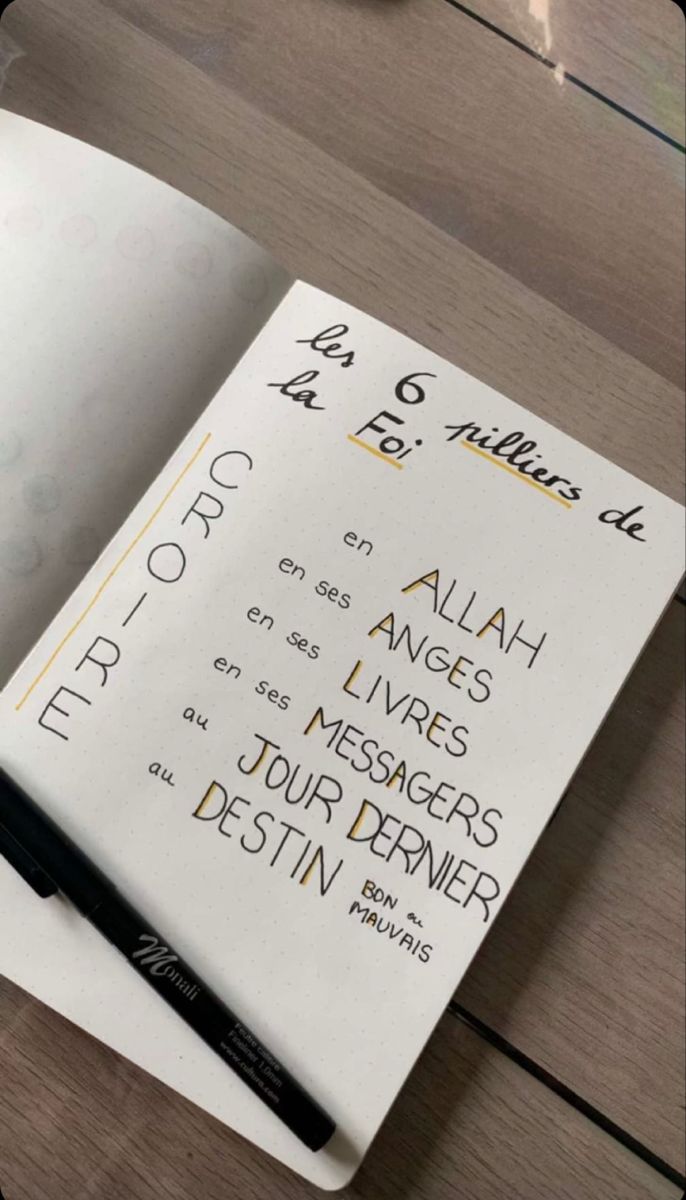 les 6 pilliers de
la Foi
CROIRE
en ALLAH
en ses ANGES
en ses LIVRES
en ses MESSAGERS
au JOUR DERNIER
au DESTIN BON ou
MAUVAIS
Monali
Feutre calibré
Fineliner 1.0mm
www.cultura.com